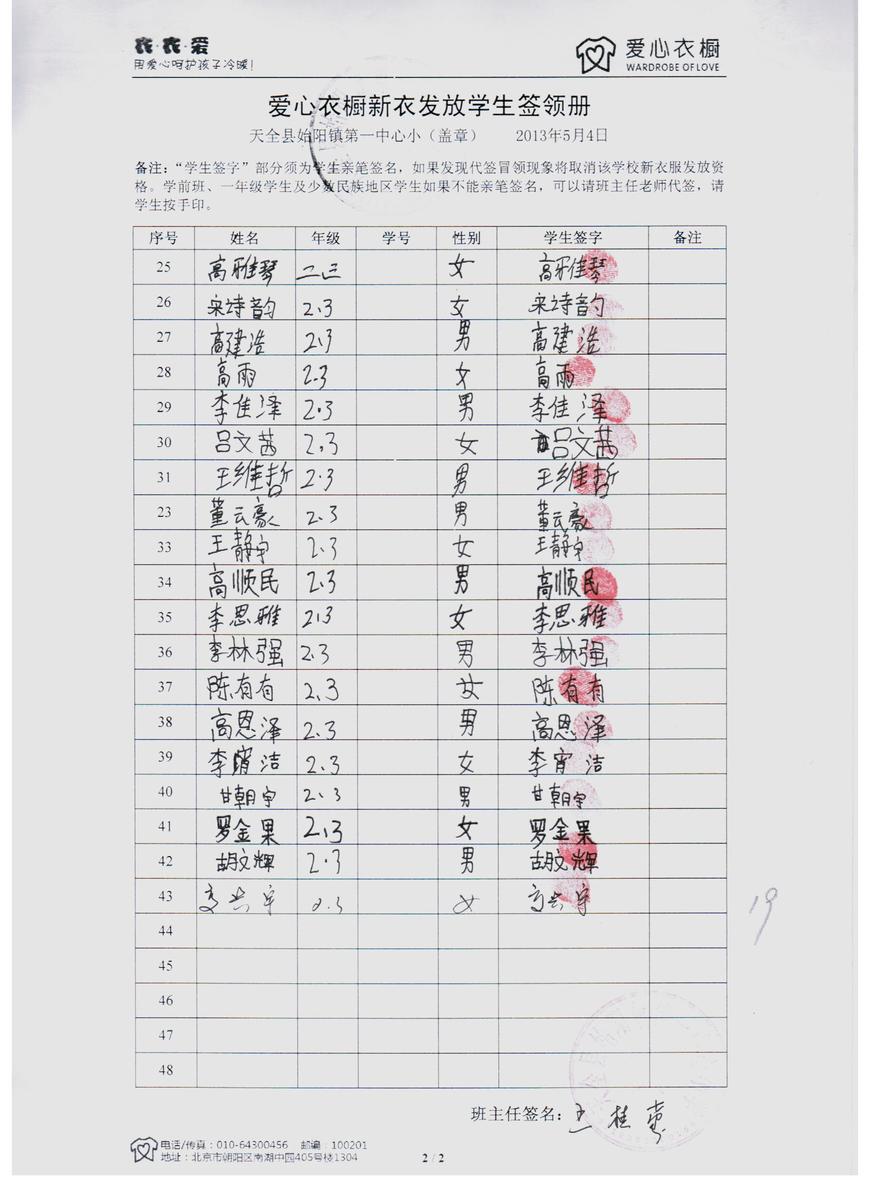 衣·衣·爱
用爱心呵护孩子冷暖!
爱心衣橱
WARDROBE OF LOVE
爱心衣橱新衣发放学生签领册
天全县始阳镇第一中心小（盖章） 2013年5月4日
备注：“学生签字”部分须为学生亲笔签名，如果发现代签冒领现象将取消该学校新衣服发放资
格。学前班、一年级学生及少数民族地区学生如果不能亲笔签名，可以请班主任老师代签，请
学生按手印。
序号 姓名 年级 学号 性别 学生签字 备注
25 高雅琴 二三 女 高雅琴
26 宋诗韵 2.3 女 宋诗韵
27 高建浩 2.3 男 高建浩
28 高雨 2.3 女 高雨
29 李佳泽 2.3 男 李佳泽
30 吕文茜 2.3 女 吕文茜
31 王维哲 2.3 男 王维哲
23 董云豪 2.3 男 董云豪
33 王静宇 2.3 女 王静宇
34 高顺民 2.3 男 高顺民
35 李思雅 2.3 女 李思雅
36 李林强 2.3 男 李林强
37 陈有有 2.3 女 陈有有
38 高恩泽 2.3 男 高恩泽
39 李宵洁 2.3 女 李宵洁
40 甘朝宇 2.3 男 甘朝宇
41 罗金果 2.3 女 罗金果
42 胡文辉 2.3 男 胡文辉
43 2.3 女
44
45
46
47
48
19
班主任签名：王桂
电话/传真：010-64300456 邮编：100201
地址：北京市朝阳区南湖中园405号楼1304
2 / 2